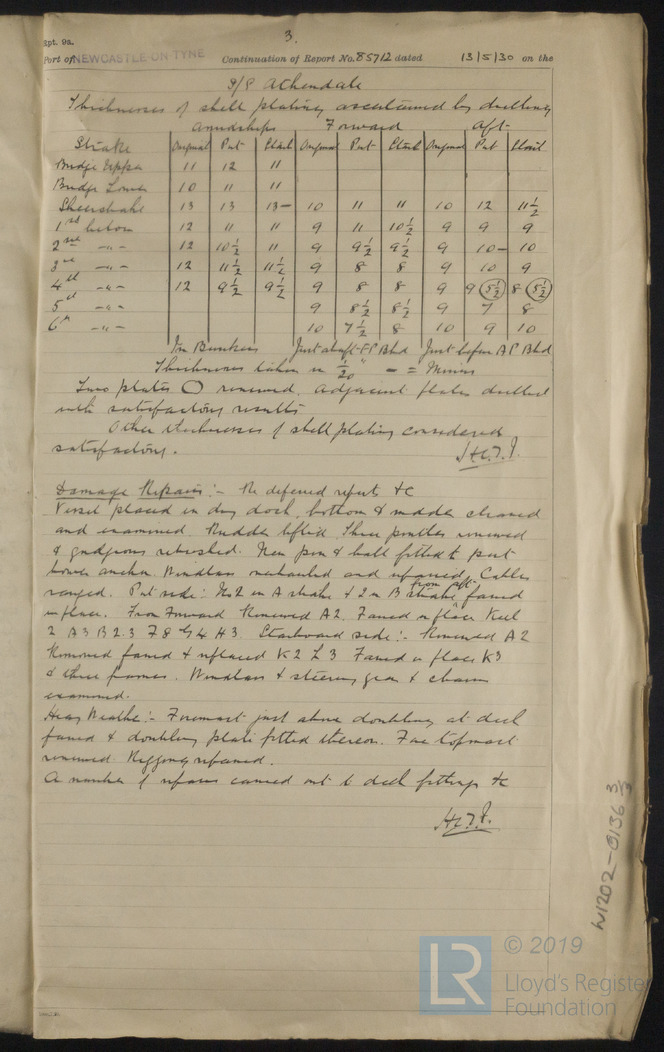 3.
Rpt. 9a.
Port of NEWCASTLE ON TYNE Continuation of Report No. 85712 dated 13/5/30 on the
S/S Athendale
Thicknesses of shell plating ascertained by drilling
Amidships Forward Aft
Strake Original Port Starb Original Port Starb Original Port Starb
Bridge Upper 11 12 11
Bridge Lower 10 11 11
Sheerstrake 13 13 13- 10 11 11 10 12 11½
1st below 12 11 11 9 11 10½ 9 9 9
2nd -"- 12 10½ 11 9 9½ 9½ 9 10- 10
3rd -"- 12 11½ 11½ 9 8 8 9 10 9
4th -"- 12 9½ 9½ 9 8 8 9 9 5½ 8 5½
5th -"- 9 8½ 8½ 9 7 8
6th -"- 10 7½ 8 10 9 10
In Bunkers Just abaft F P Bhd Just before A P Bhd
Thicknesses taken in 1/20" - = Minus
Two plates O renewed, adjacent plates drilled
with satisfactory results
Other thicknesses of shell plating considered
satisfactory.
Damage Repairs:- Re deferred repts &c
Vessel placed in dry dock, bottom & rudder cleaned
and examined. Rudder lifted, three pintles renewed
& gudgeons rebushed. New pin & ball fitted to port
bower anchor. Windlass overhauled and repaired. Cables
ranged. Port side: No 2 in A strake & 2 in B strake from aft faired
in place. From Forward Renewed A2. Faired in place Keel
2 A3 B2.3 F8 G4 H3. Starboard side:- Renewed A2
Removed faired & replaced K2 L3 Faired in place K3
& three frames. Windlass & steering gear & chains
examined.
Heavy Weather:- Foremast just above doubling at deck
faired & doubling plate fitted thereon. Fore topmast
renewed. Rigging repaired.
A number of repairs carried out to deck fittings &c
W1202-0136 3/3
LR
© 2019
Lloyd's Register
Foundation